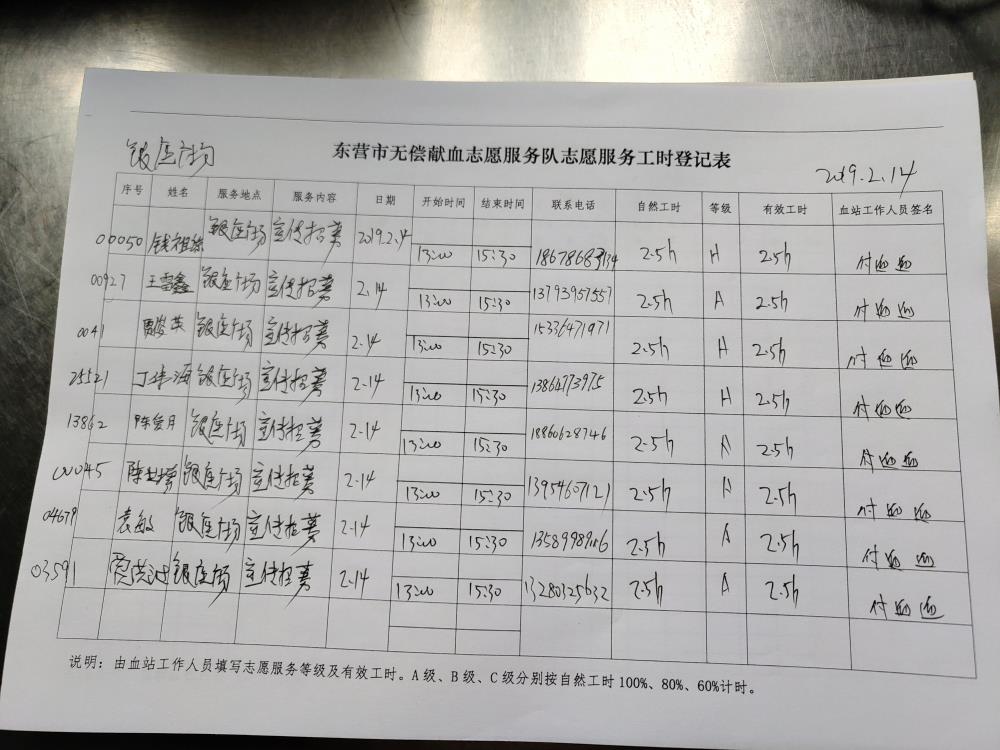 银座广场 东营市无偿献血志愿服务队志愿服务工时登记表 2019.2.14
序号 姓名 服务地点 服务内容 日期 开始时间 结束时间 联系电话 自然工时 等级 有效工时 血站工作人员签名
00050 银座广场 宣传招募 2019.2.14 13:00 15:30 2.5h A 2.5h
00927 王雷鑫 银座广场 宣传招募 2.14 13:00 15:30 13793957557 2.5h A 2.5h
0041 银座广场 宣传招募 2.14 13:00 15:30 15336471971 2.5h A 2.5h
25521 银座广场 宣传招募 2.14 13:00 15:30 13864773975 2.5h A 2.5h
13862 陈爱月 银座广场 宣传招募 2.14 13:00 15:30 18860628746 2.5h A 2.5h
00045 银座广场 宣传招募 2.14 13:00 15:30 13954607121 2.5h A 2.5h
04679 袁敏 银座广场 宣传招募 2.14 13:00 15:30 2.5h A 2.5h
03591 银座广场 宣传招募 2.14 13:00 15:30 13280325632 2.5h A 2.5h
说明：由血站工作人员填写志愿服务等级及有效工时。A级、B级、C级分别按自然工时100%、80%、60%计时。